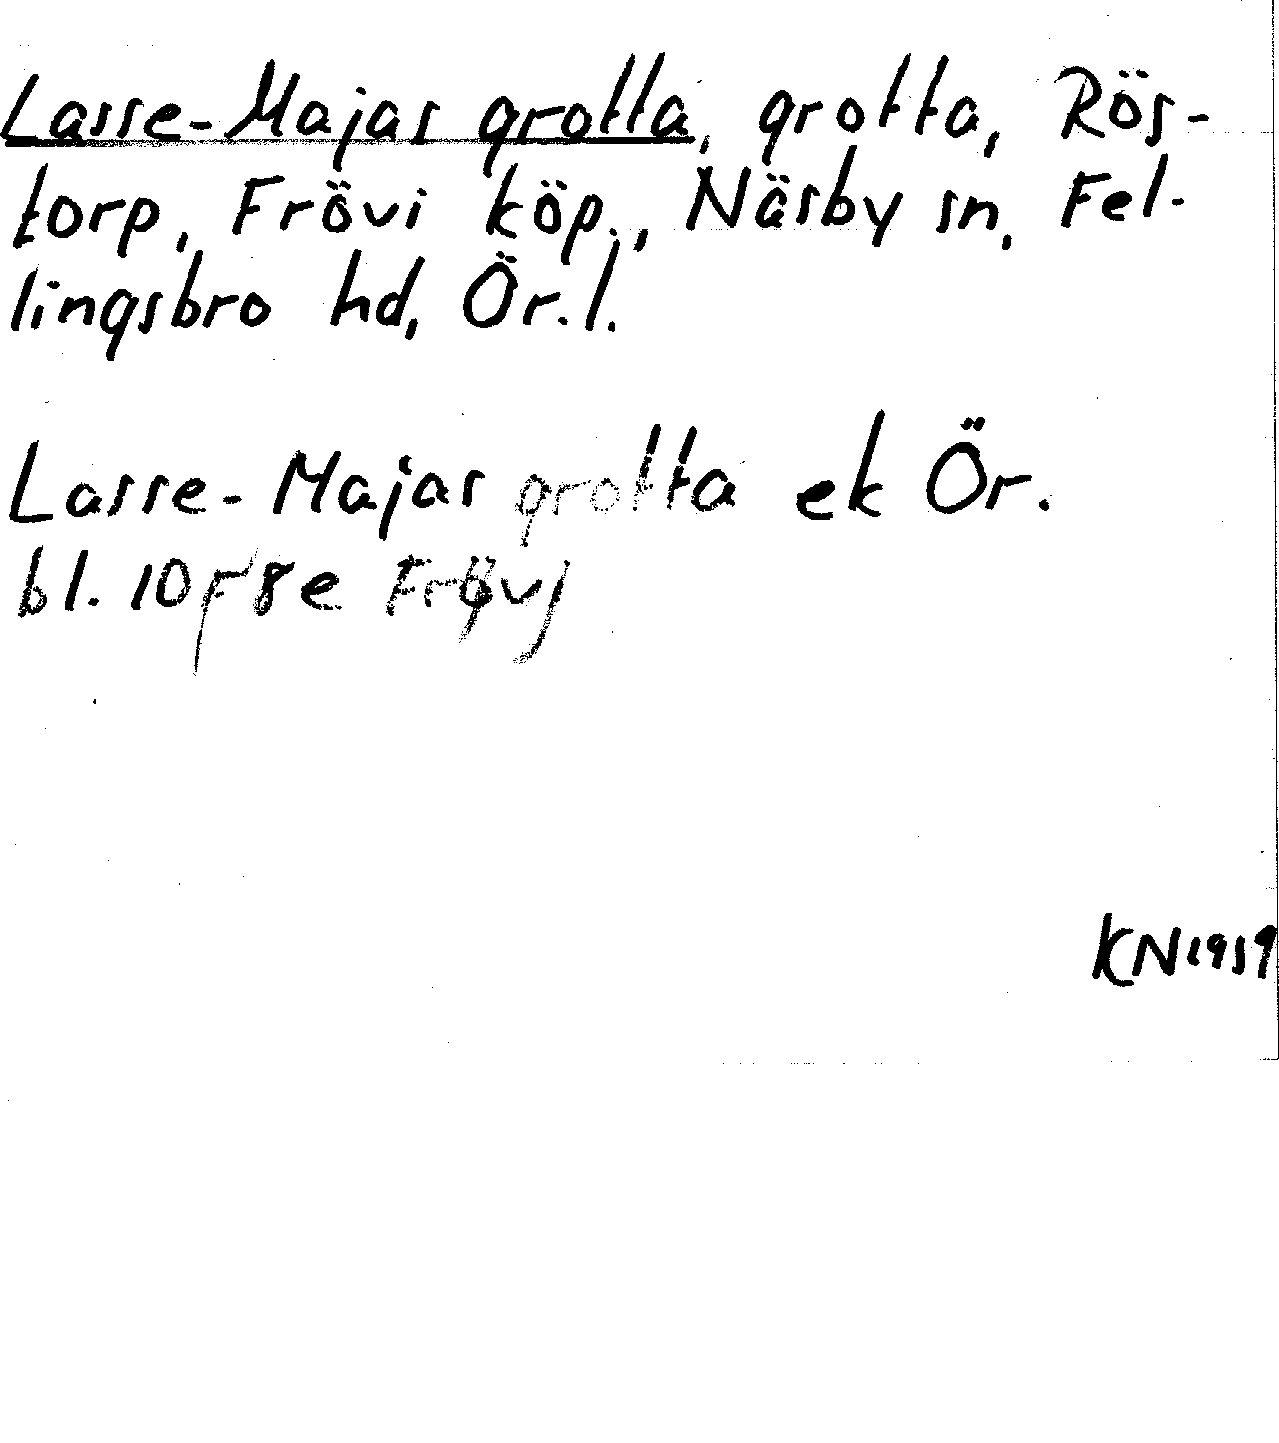 Lasse-Majas grotta, grotta, Rös-
torp, Frövi köp., Näsby sn, Fel-
lingsbro hd, Ör. l.
Lasse-Majas grotta ek Ör.
bl. 10F 8e Frövi
KN1959